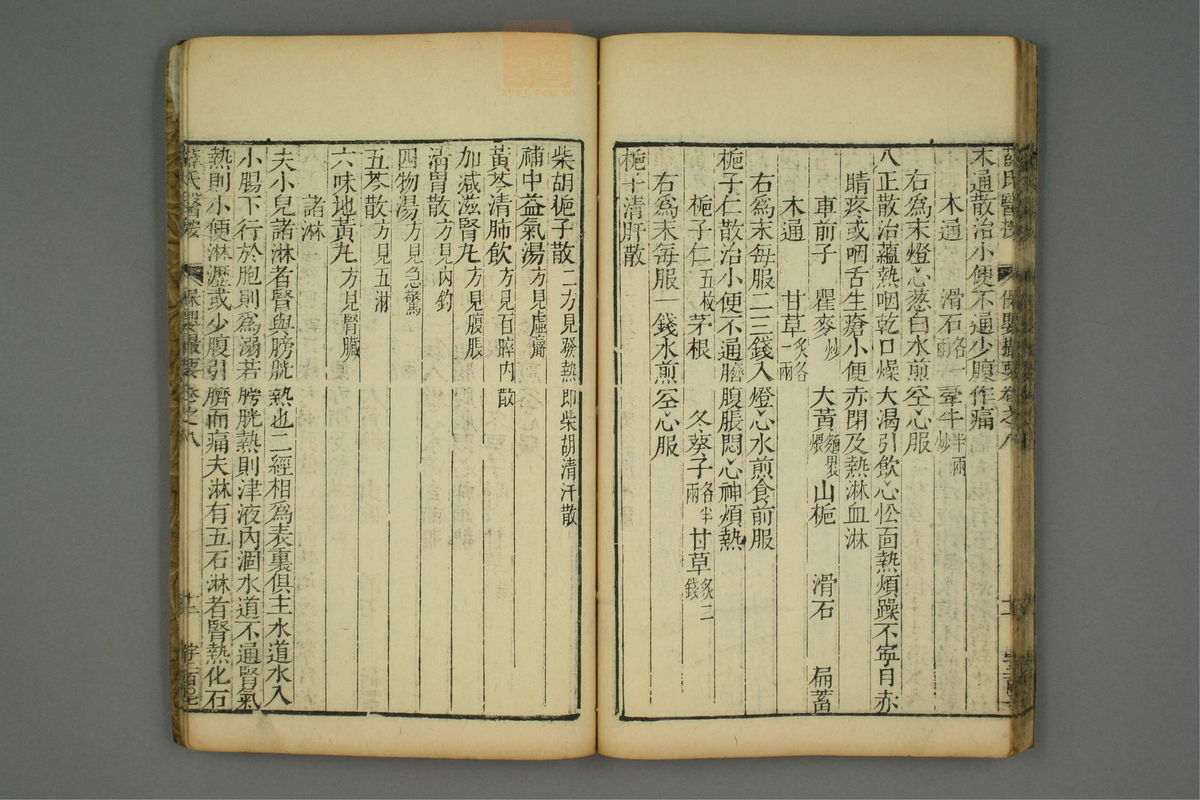 木通散治小便不通少腹作痛
木通 滑石各一兩 牽牛半兩炒
右爲末燈心葱白水煎空心服
八正散治蘊熱咽乾口燥大渴引飲心忪面熱煩躁不寧目赤
睛疼或咽舌生瘡小便赤閉及熱淋血淋
車前子 瞿麥炒 大黃麵裹煨 山梔 滑石 扁蓄
木通 甘草炙各一兩
右爲末每服二三錢入燈心水煎食前服
梔子仁散治小便不通臍腹脹悶心神煩熱
梔子仁五枚 茅根 冬葵子各半兩 甘草炙二錢
右爲末每服一錢水煎空心服
梔子清肝散
柴胡梔子散二方見發熱即柴胡清汗散
補中益氣湯方見虛羸
黃芩清肺飲方見百晬內散
加減滋腎丸方見腹脹
清胃散方見內釣
四物湯方見急驚
五苓散方見五淋
六味地黃丸方見腎臟
諸淋
夫小兒諸淋者腎與膀胱熱也二經相爲表裏俱主水道水入
小腸下行於胞則爲溺若膀胱熱則津液內涸水道不通腎氣
熱則小便淋瀝或少腹引臍而痛夫淋有五石淋者腎熱化石
薛氏醫按 保嬰撮要卷之八 十二